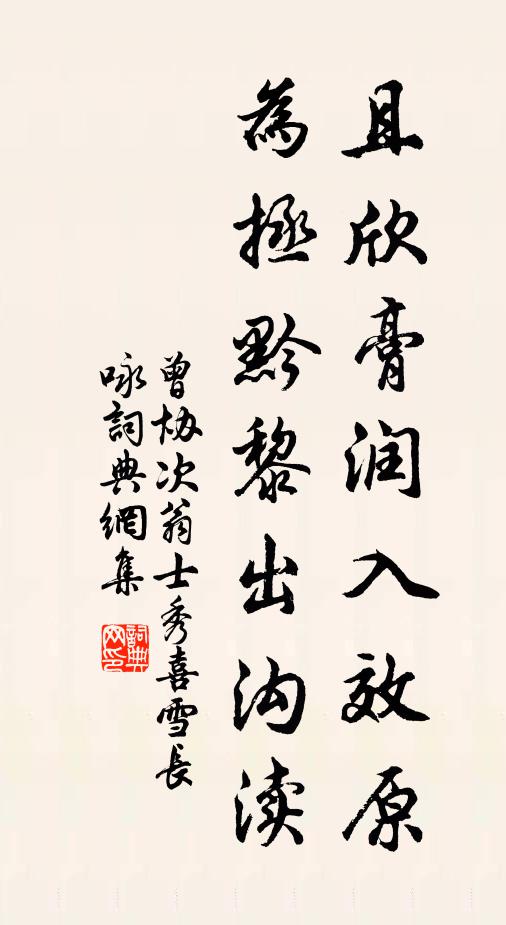 且欣膏润入效原
為拯黔黎出沟渎
曾协次翁士秀喜雪長
咏詞典網集
詞典網印